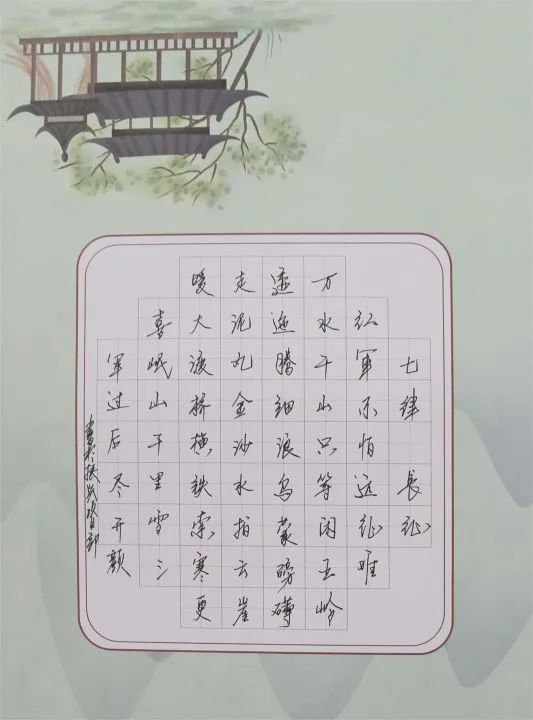 七律 長征
红军不怕远征难
万水千山只等闲五岭
逶迤腾细浪乌蒙磅礴
走泥丸金沙水拍云崖
暖大渡桥横铁索寒更
喜岷山千里雪三
军过后尽开颜